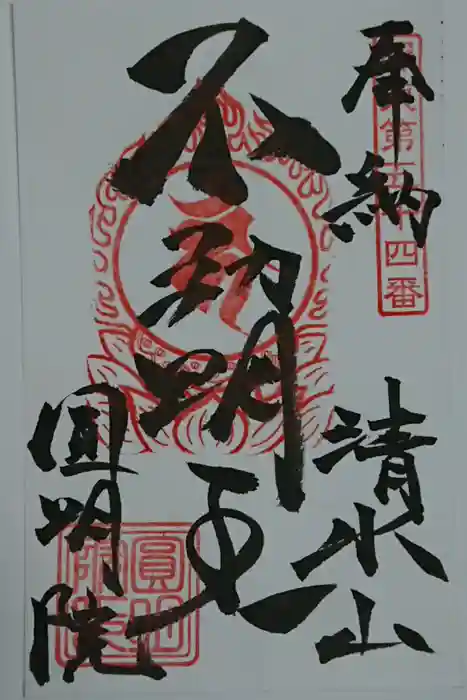 奉納
清水山
不動明王
圓明院
四番